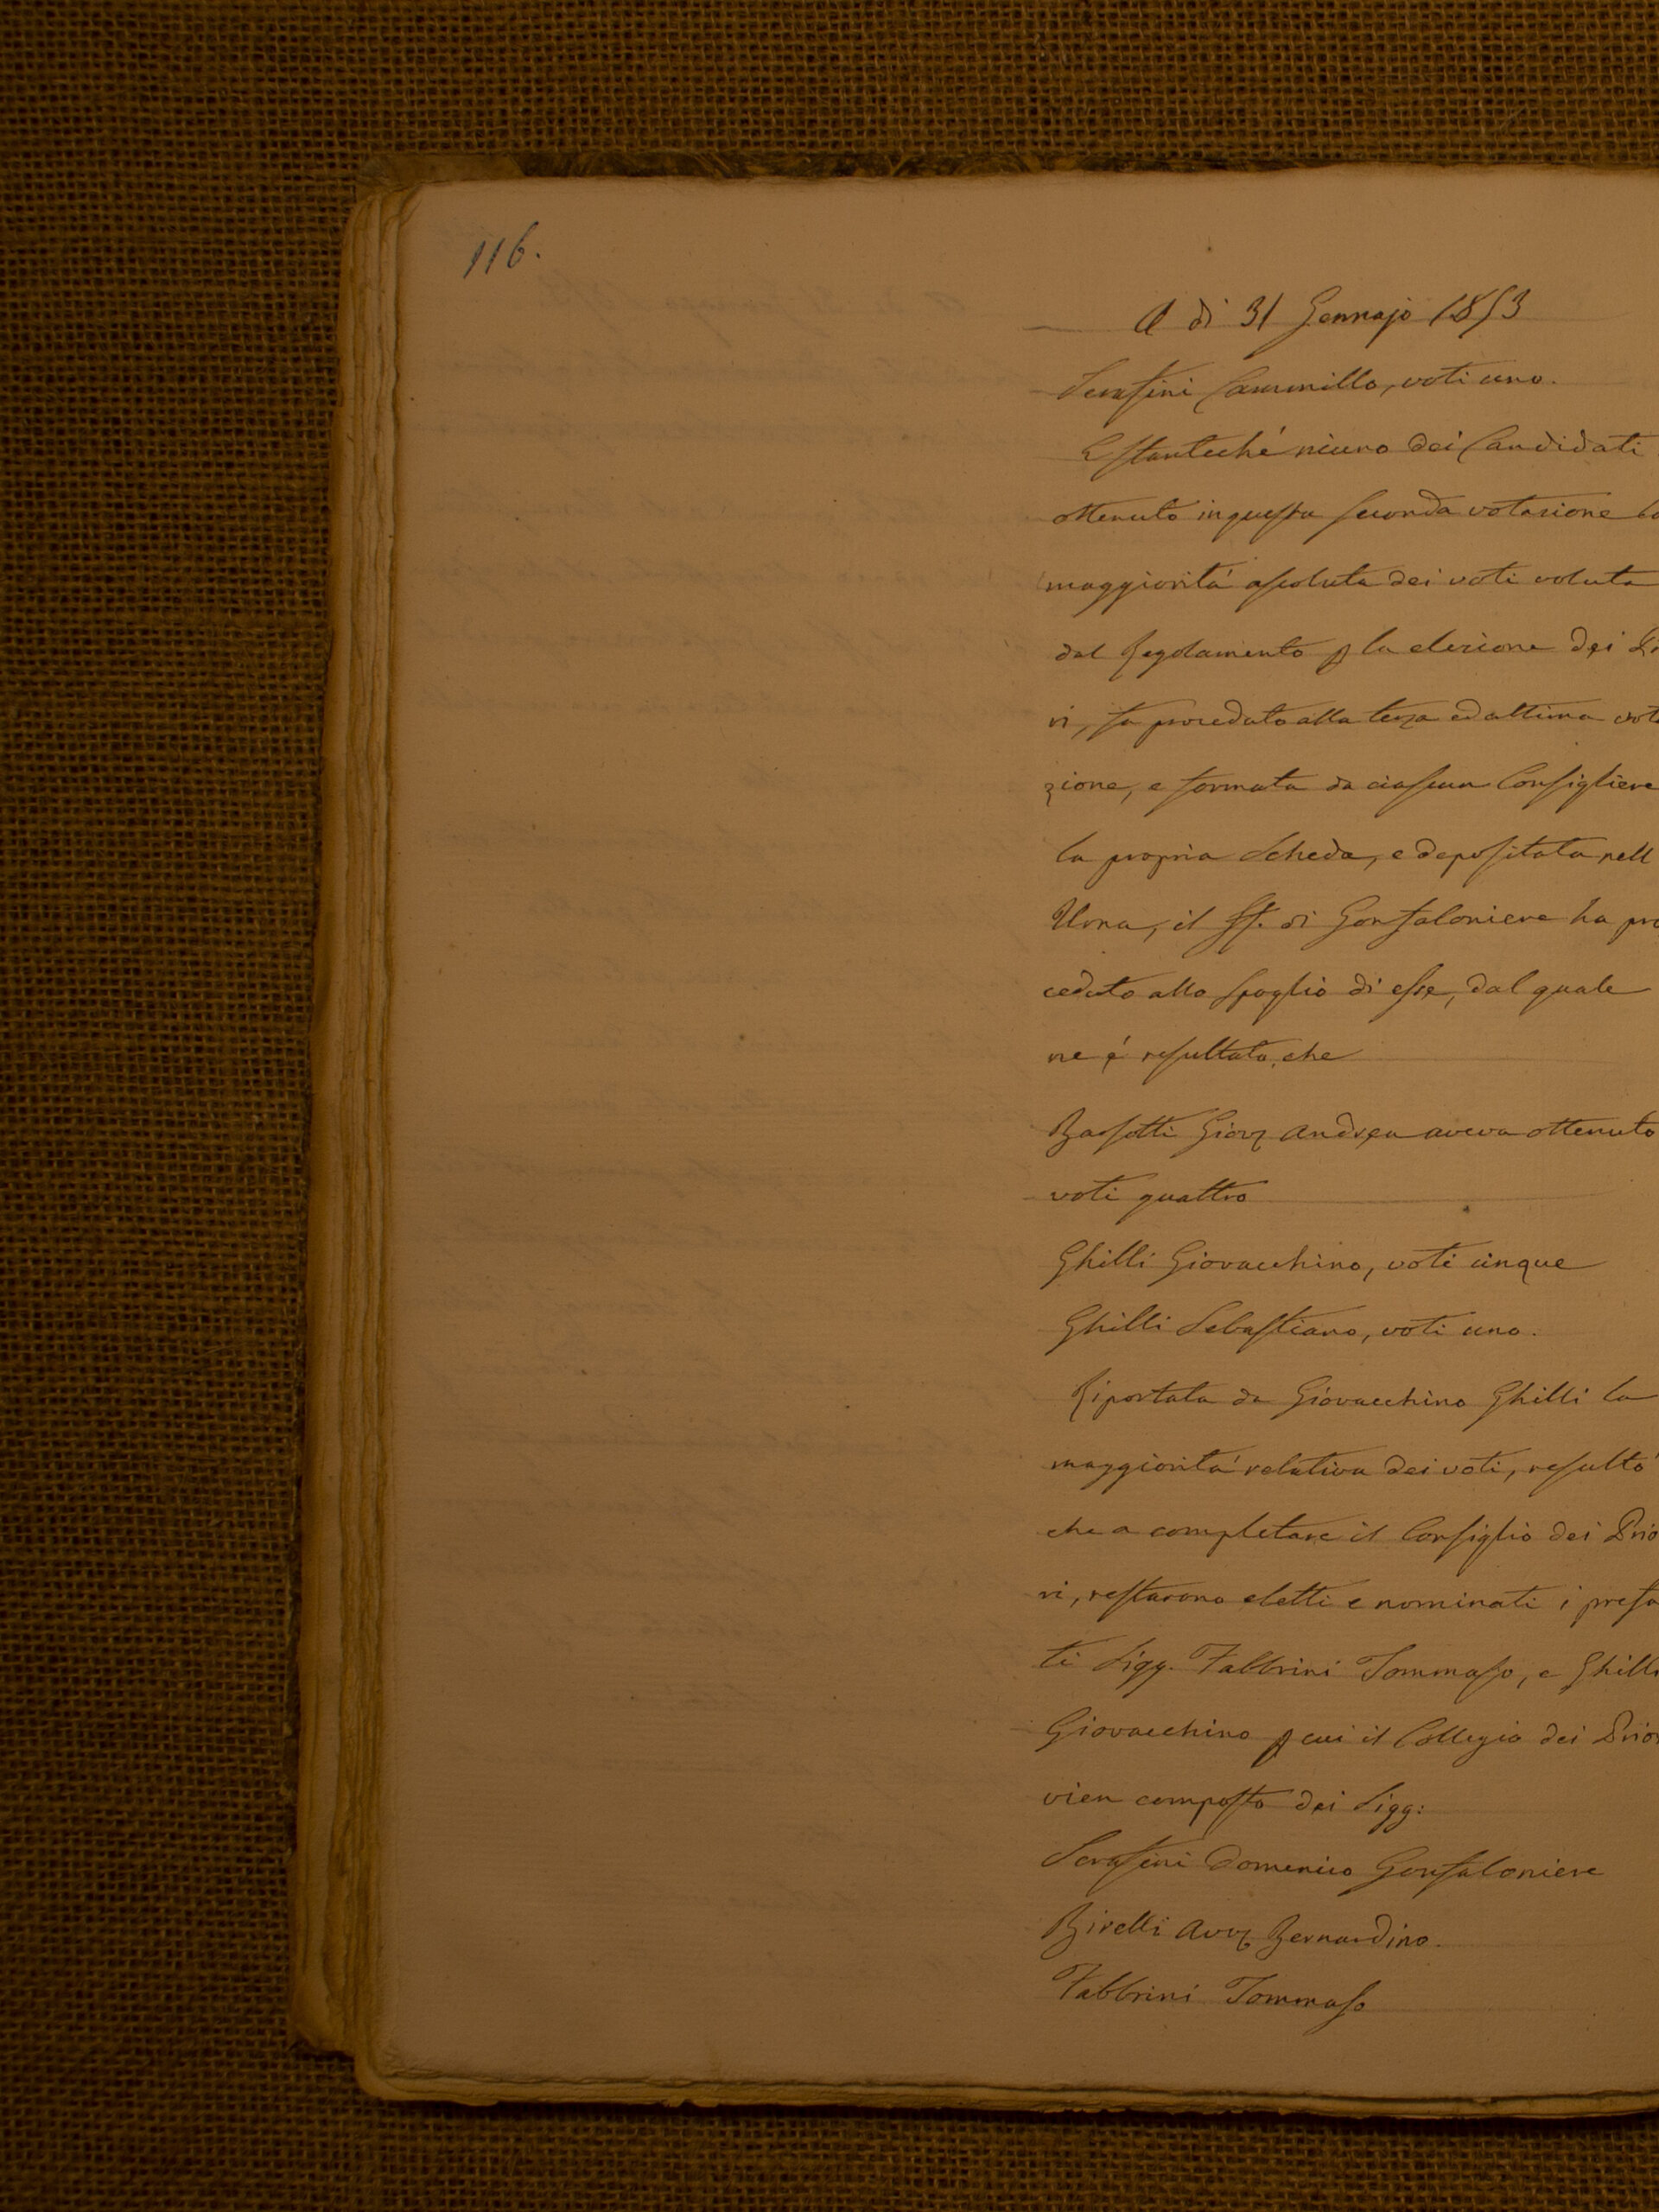 116.
A di 31 Gennajo 1853
Serafini Cammillo, voti uno.
E stanteché niuno dei Candidati
ottenuto in questa seconda votazione la
maggiorità assoluta dei voti voluta
dal Regolamento p la elezione dei Pri
ri, fu proceduto alla terza ed ultima vota
zione, e formata da ciascun Consigliere
la propria Scheda, e depositata nell
Urna, il ff. di Gonfaloniere ha pro
ceduto allo spoglio di esse, dal quale
ne é resultato, che
Bassotti Giov Andrea aveva ottenuto
voti quattro
Ghilli Giovacchino, voti cinque
Ghilli Sebastiano, voti uno.
Riportata da Giovacchino Ghilli la
maggiorità relativa dei voti, resultò
che a completare il Consiglio dei Prio
ri, restarono eletti e nominati i prefa
ti Sigg. Fabbrini Tommaso, e Ghilli
Giovacchino p cui il Collegio dei Prior
vien composto dei Sigg:
Serafini Domenico Gonfaloniere
Birelli Avv Bernardino.
Fabbrini Tommaso